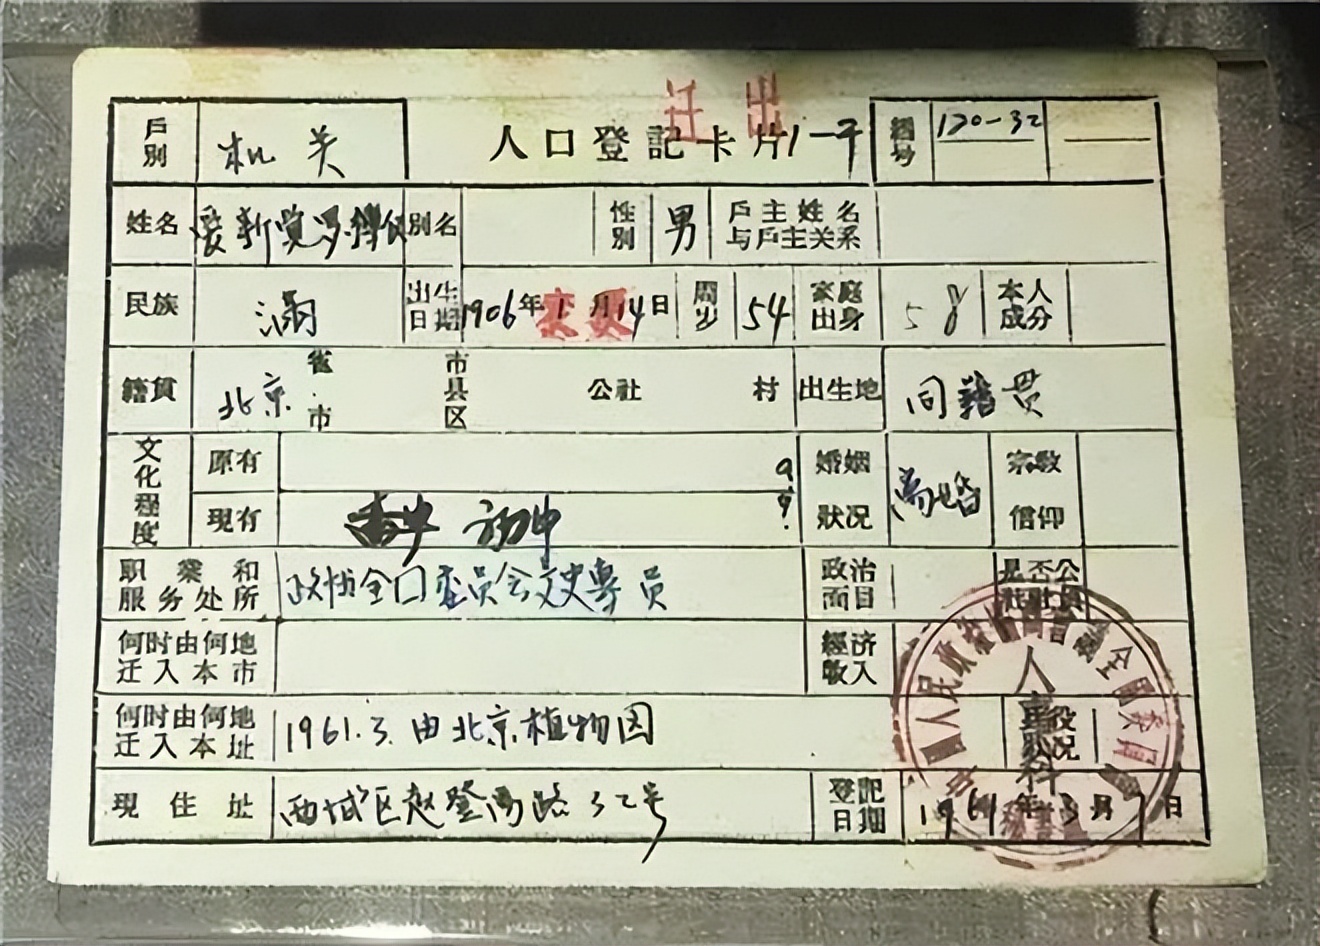 迁出
戶別 机关 人口登記卡片 編号 120-32
姓名 爱新觉罗 別名 性別 男 戶主姓名与戶主关系
民族 满 出生日期 1906年1月14日 变更 周岁 54 家庭出身 本人成分
籍貫 北京 省市 市县区 公社 村 出生地 同籍贯
文化程度 原有 婚姻狀况 离婚 宗教信仰
現有 初中
职業和服务处所 政协全囗委员会文史專员 政治面目 是否公社社員
何时由何地迁入本市 經济收入
何时由何地迁入本址 1961.3.由北京植物园
現住址 西城区赵登禹路32号 登記日期 1961年3月7日
人事科